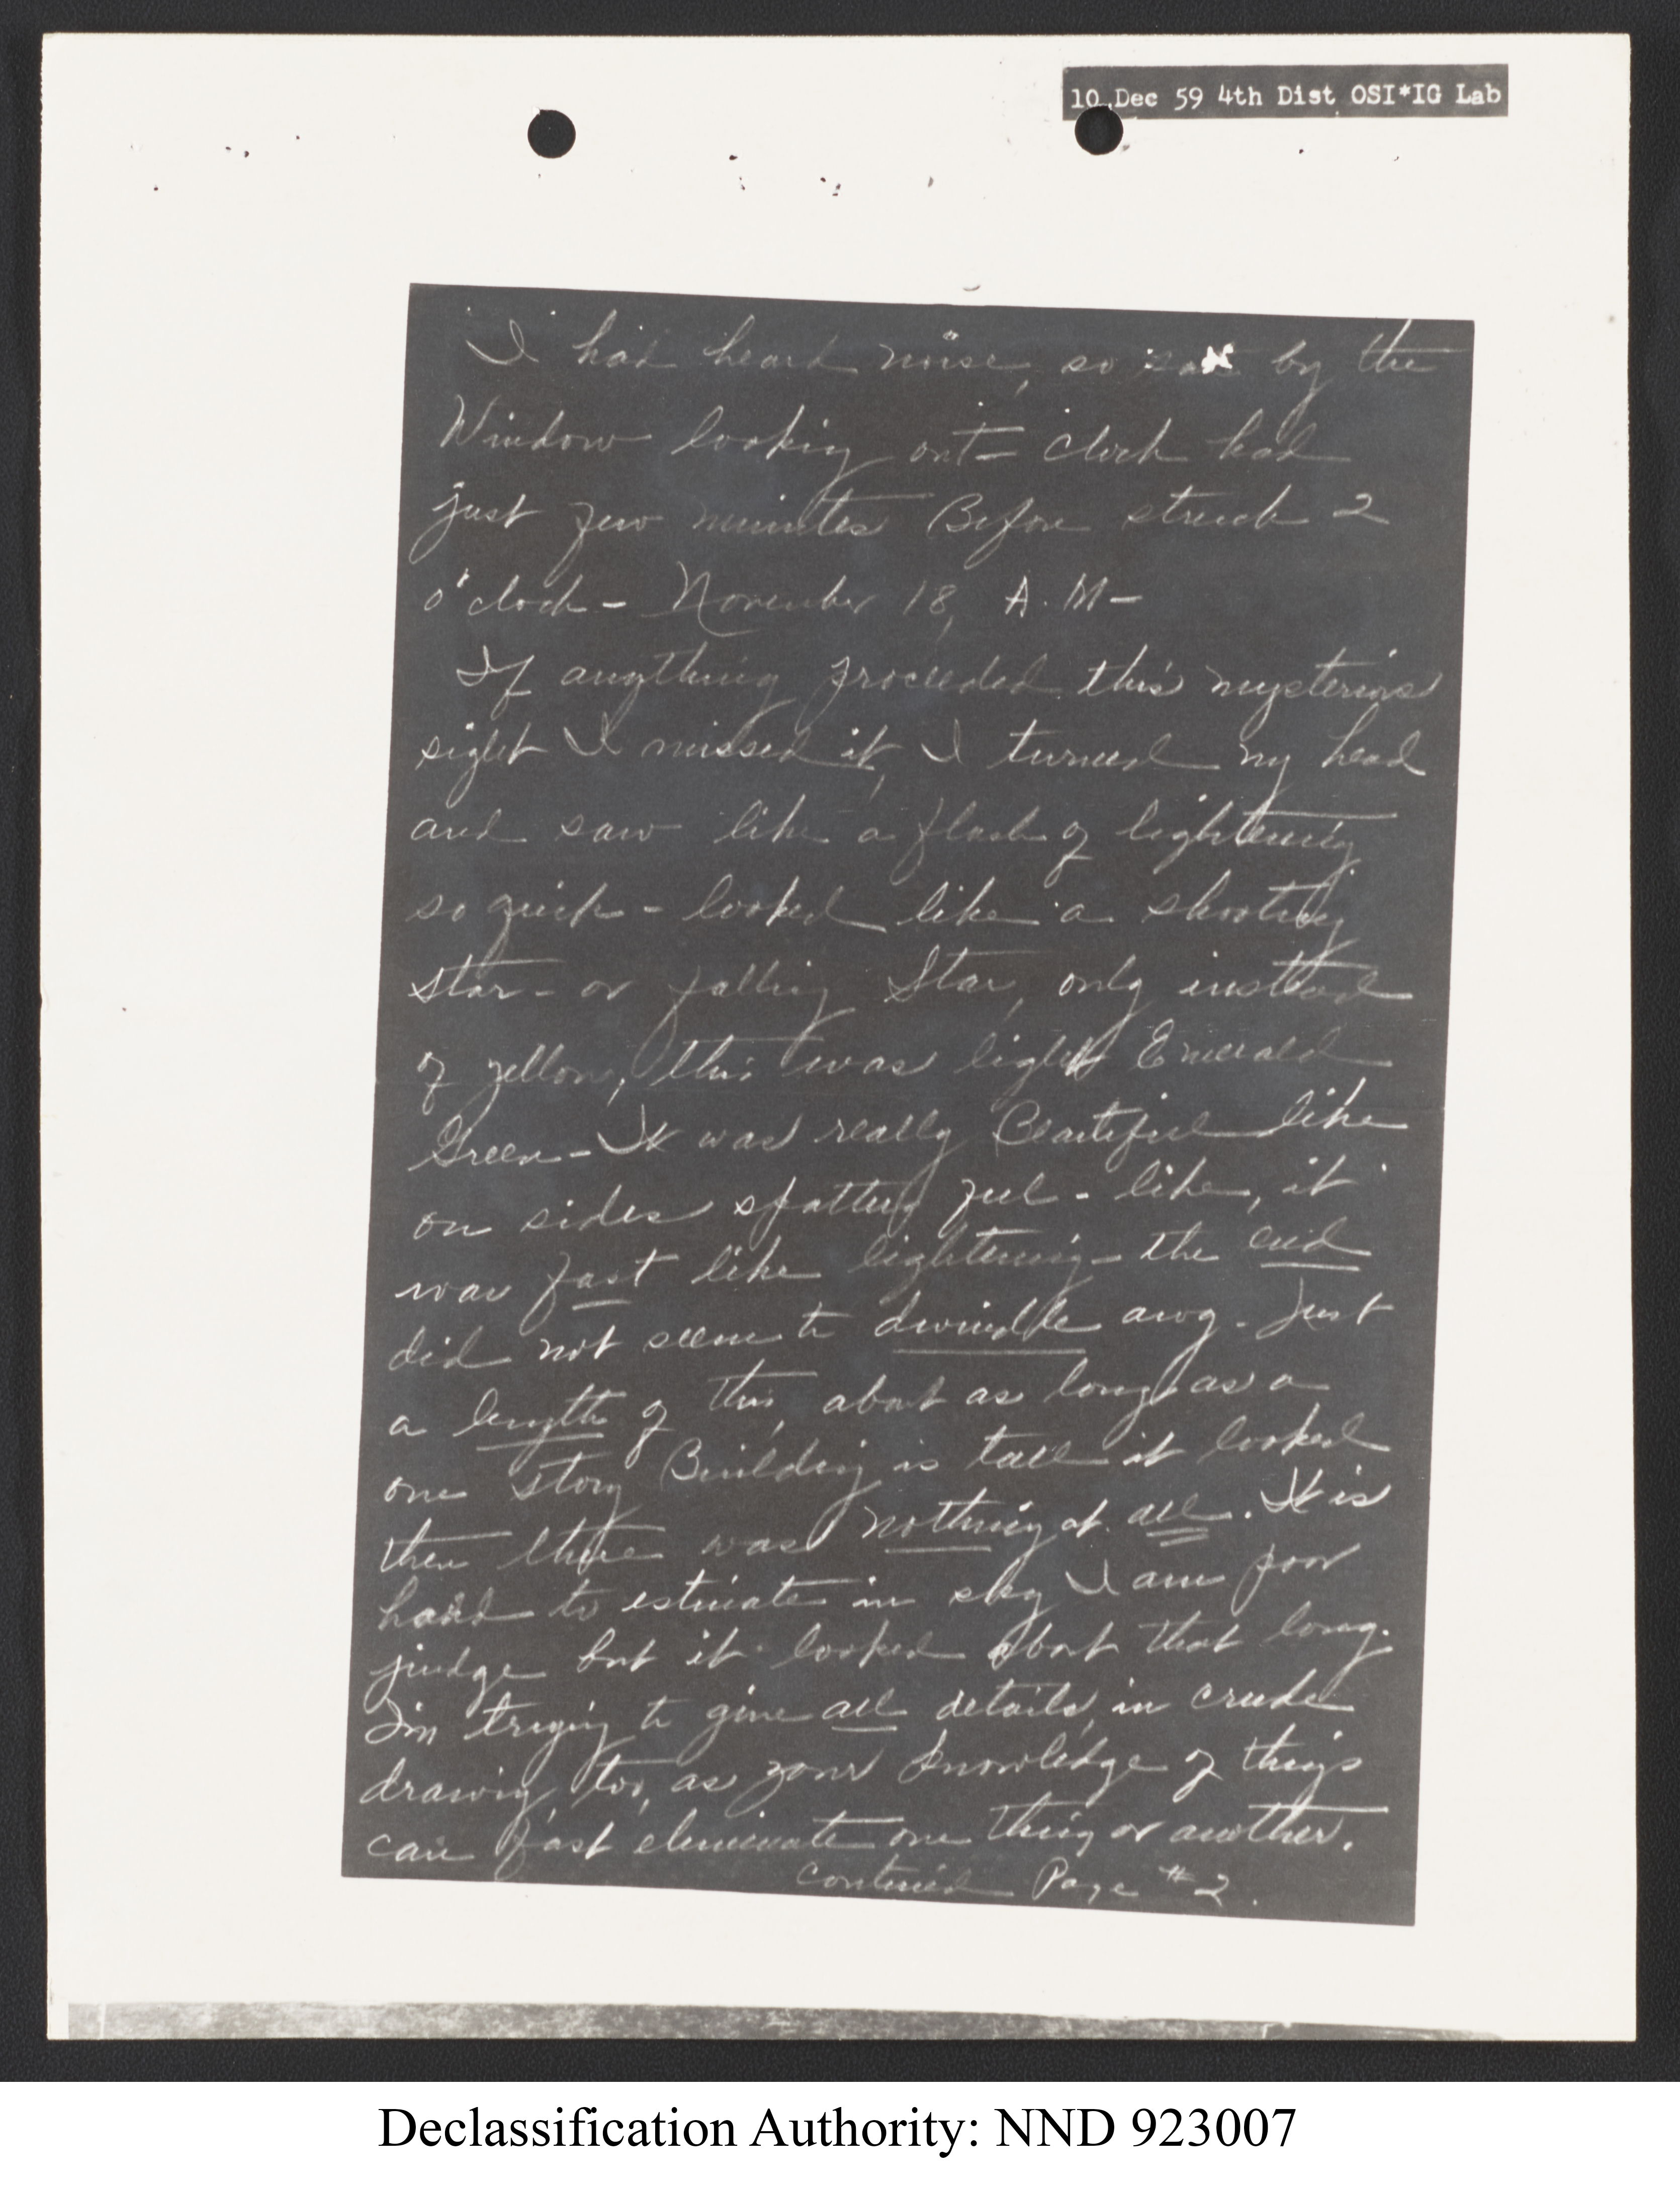 10 Dec 59 4th Dist OSI*IG Lab
I had heard noise, so sat by the
Window looking out - clock had
just few minutes Before struck 2
o'clock - November 18, A.M -
If anything proceeded this mysterious
sight I missed it, I turned my head
and saw like a flash of lightening
so quick - looked like a shooting
star - or falling Star, only instead
of yellow, this was light Emerald
Green - It was really Beautiful like
on sides spattery like, it
was fast like lightening - the end
did not seem to dwindle away. Just
a length of this, about as long as a
one story Building is tall it looked
then there was nothing at all. It is
hard to estimate in sky I am poor
judge but it looked about that long.
I'm trying to give all details, in crude
drawing, too, as your knowledge of things
can fast eliminate one thing or another.
continued Page #2.
Declassification Authority: NND 923007